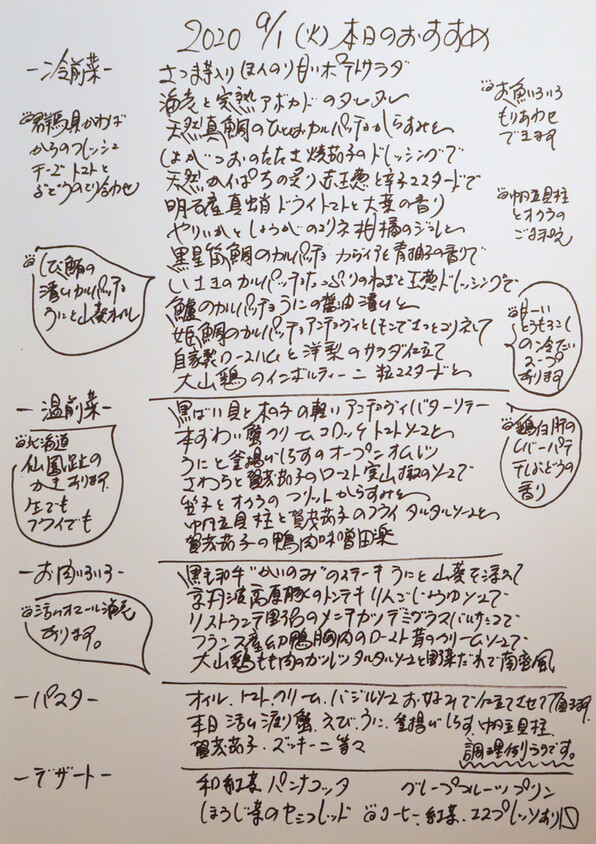 2020 9/1 (火) 本日のおすすめ
ー冷前菜ー
さつま芋入り ほんのり甘いポテトサラダ
海老と完熟アボカドのタルタル
天然真鯛のひとくちカルパッチョ からすみと
しょかつおのたたき 焼茄子のドレッシングで
天然かんぱちの炙り 赤玉葱と辛子マスタードで
明石産真蛸 ドライトマトと大葉の香り
やりいかとしょうがのマリネ 柑橘のジュレと
黒星笛鯛のカルパッチョ カラブリアと青柚子の香りで
いさきのカルパッチョ たっぷりのねぎと玉葱ドレッシングで
鱸のカルパッチョ うにの醤油漬けと
姫鯛のカルパッチョ アンチョヴィとレモンでさっとマリネして
自家製ロースハムと洋梨のサラダ仕立て
大山鶏のインボルティーニ 粒マスタードと
群馬県かわば
からのフレッシュ
チーズ トマトと
ぶどうのとり合わせ
しび鮪の
漬けカルパッチョ
うにと山葵オイル
お魚いろいろ
もりあわせ
できます
帆立貝柱
とオクラの
ごまあえ
甘ーい
とうもろこし
の冷たい
スープ
あります
ー温前菜ー
黒ばい貝と木の子の軽いアンチョヴィバターソテー
本ずわい蟹クリームコロッケ トマトソースと
うにと釜揚げしらすのオープンオムレツ
さわらと賀茂茄子のロースト 実山椒のソースで
笛子とオクラのフリット からすみと
帆立貝柱と賀茂茄子のフライ タルタルソースと
賀茂茄子の鴨肉味噌田楽
北海道
仙鳳趾の
かき あります
生でも
フライでも
鶏白肝の
レバーパテ
干しぶどうの
香り
ーお肉いろいろー
黒毛和牛“かいのみ”のステーキ うにと山葵を添えて
京丹波高原豚のトンテキ りんごじょうゆソースで
リストランテ田子呂のメンチカツ デミグラスバルサミコで
フランス産幼鴨胸肉のロースト 茸のクリームソースで
大山鶏もも肉のカツレツ タルタルソースと野菜だれで南蛮風
活オマール海老
あります。
ーパスター
オイル、トマト、クリーム、バジルソース お好みで仕立てさせて頂きます
本日 活〆渡り蟹、えび、うに、釜揚げしらす、帆立貝柱、
賀茂茄子、ズッキーニ等々
調理例ありです。
ーデザートー
和紅茶パンナコッタ グレープフルーツプリン
ほうじ茶のセミフレッド コーヒー、紅茶、エスプレッソあり〼